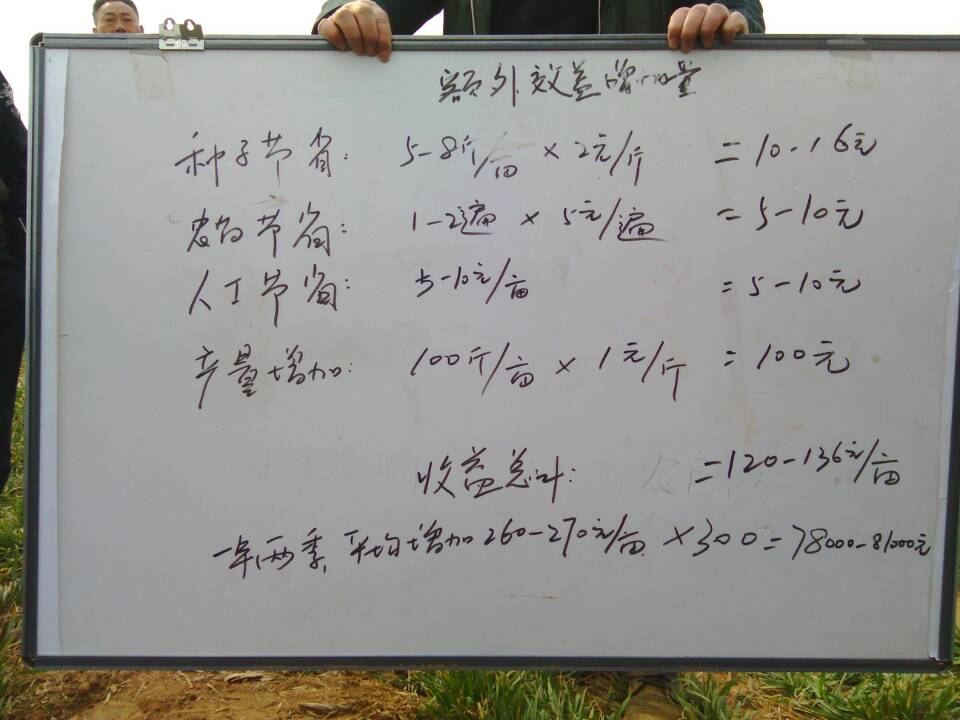 额外效益增加量
种子节省: 5-8斤/亩 × 2元/斤 = 10-16元
农药节省: 1-2遍 × 5元/遍 = 5-10元
人工节省: 5-10元/亩 = 5-10元
产量增加: 100斤/亩 × 1元/斤 = 100元
收益总计: =120-136元/亩
一年两季,平均增加260-270元/亩 ×300=78000-81000元